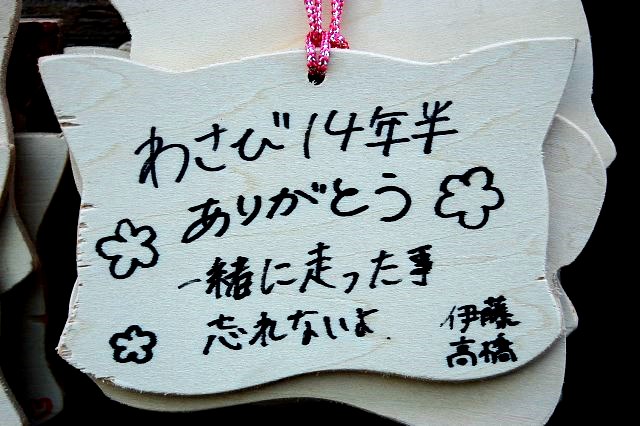 わさび14年半
ありがとう
一緒に走った事
忘れないよ
伊藤
高橋